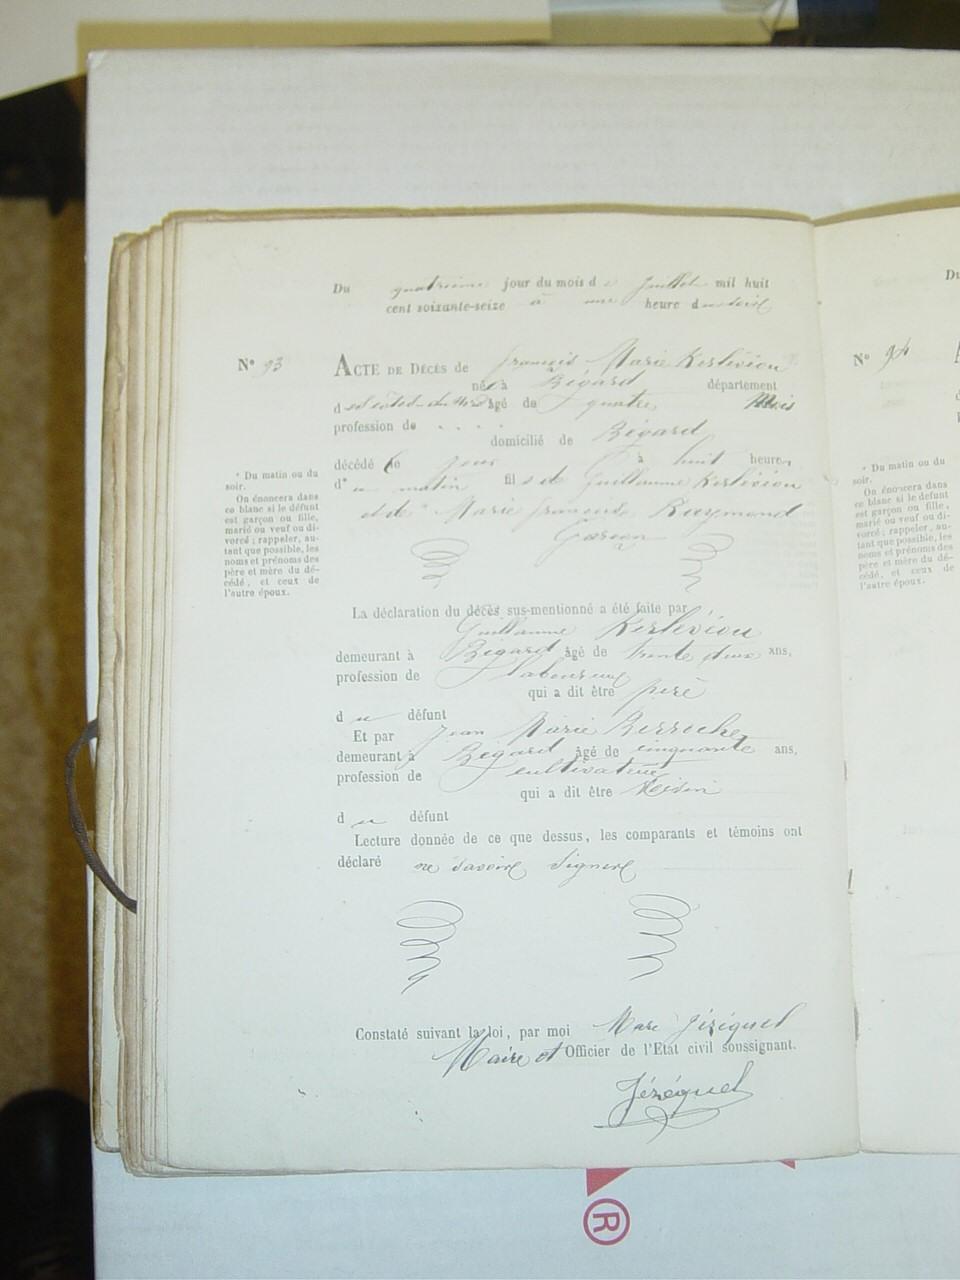 Du quatrième jour du mois de Juillet mil huit
cent soixante-seize à une heure du soir
N° 93
ACTE DE DÉCÈS de François Marie Kerlévéou
né à Bégard département
des Côtes-du-Nord âgé de quatre Mois
profession de . . . .
domicilié de Bégard
décédé ce jour à huit heures
du matin fils de Guillaume Kerlévéou
et de Marie Françoise Raymond
Garçon
* Du matin ou du
soir.
On énoncera dans
ce blanc si le défunt
est garçon ou fille,
marié ou veuf ou di-
vorcé ; rappeler, au-
tant que possible, les
noms et prénoms des
père et mère du dé-
cédé, et ceux de
l'autre époux.
La déclaration du décès sus-mentionné a été faite par
Guillaume Kerlévéou
demeurant à Bégard âgé de trente deux ans,
profession de laboureur
qui a dit être père
du défunt
Et par Jean Marie
demeurant à Bégard âgé de cinquante ans,
profession de cultivateur
qui a dit être Voisin
du défunt
Lecture donnée de ce que dessus, les comparants et témoins ont
déclaré ne Savoir Signer
Constaté suivant la loi, par moi Marc Jézéquel
Maire et Officier de l'Etat civil soussignant.
Jézéquel
Du
N° 94
* Du matin ou du
soir.
On énoncera dans
ce blanc si le défunt
est garçon ou fille,
marié ou veuf ou di-
vorcé ; rappeler, au-
tant que possible, les
noms et prénoms des
père et mère du dé-
cédé, et ceux de
l'autre époux.
®